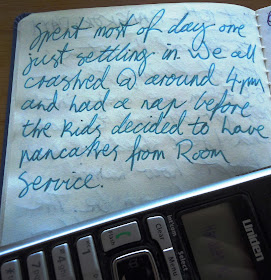 Spent most of day one
just settling in. We all
crashed @ around 4pm
and had a nap before
the kids decided to have
pancakes from Room
Service.
Uniden
Clear